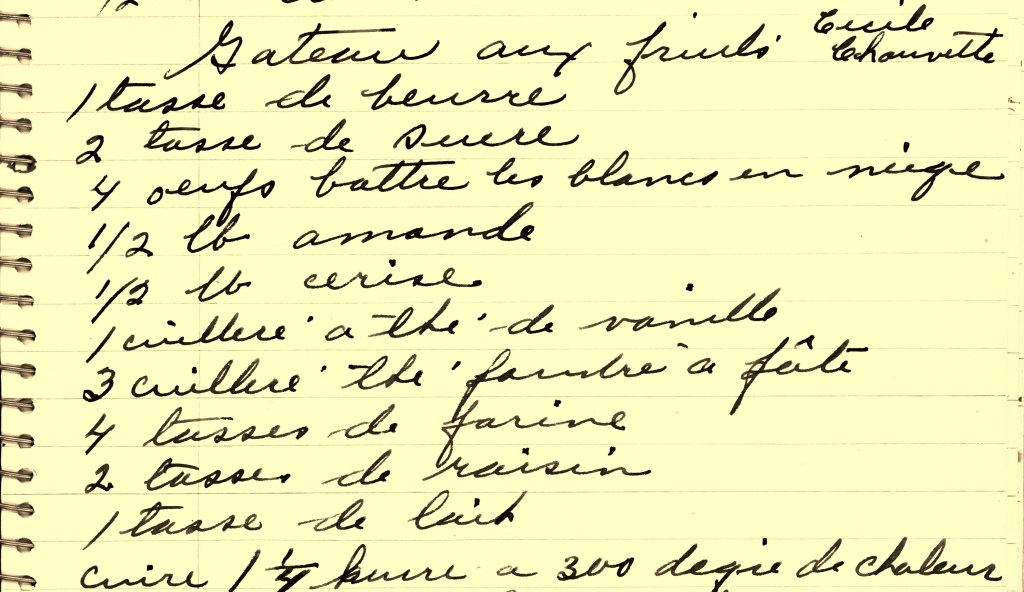 Gateau aux fruits Cecile Chouvette
1 tasse de beurre
2 tasse de sucre
4 oeufs battre les blancs en niege
1/2 lb amande
1/2 lb cerise
1 cuilleré a thé de vanille
3 cuilleré thé poudre a pâte
4 tasses de farine
2 tasses de raisin
1 tasse de lait
cuire 1 1/4 heure a 300 degre de chaleur